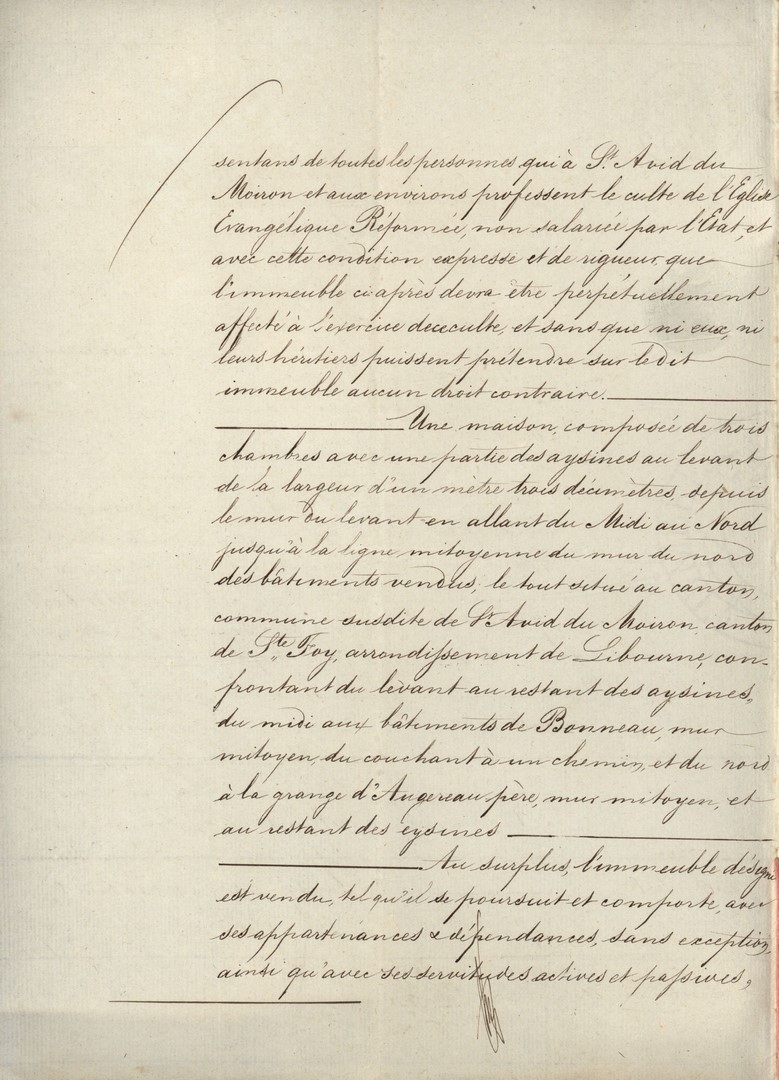 sentans de toutes les personnes qui à St. Avid du
Moiron et aux environs professent le culte de l'Eglise
Evangélique Réformée, non salariée par l'Etat, et
avec cette condition expresse et de rigueur que
l'immeuble ci après devra être perpétuellement
affecté à l'exercice de ce culte, et sans que ni eux, ni
leurs héritiers puissent prétendre sur le dit
immeuble aucun droit contraire.
Une maison, composée de trois
chambres avec une partie des aysines au levant
de la largeur d'un mètre trois décimètres, depuis
le mur du levant en allant du Midi au Nord
jusqu'à la ligne mitoyenne du mur du nord
des bâtiments vendus, le tout situé au canton,
commune susdite de St Avid du Moiron, canton
de Ste Foy, arrondissement de Libourne, con-
frontant du levant au restant des aysines,
du midi aux bâtiments de Bonneau, mur
mitoyen, du couchant à un chemin, et du nord
à la grange d'Augereau père, mur mitoyen, et
au restant des eysines
Au surplus, l'immeuble désigné
est vendu, tel qu'il se poursuit et comporte, avec
ses appartenances & dépendances, sans exception,
ainsi qu'avec ses servitudes actives et passives,